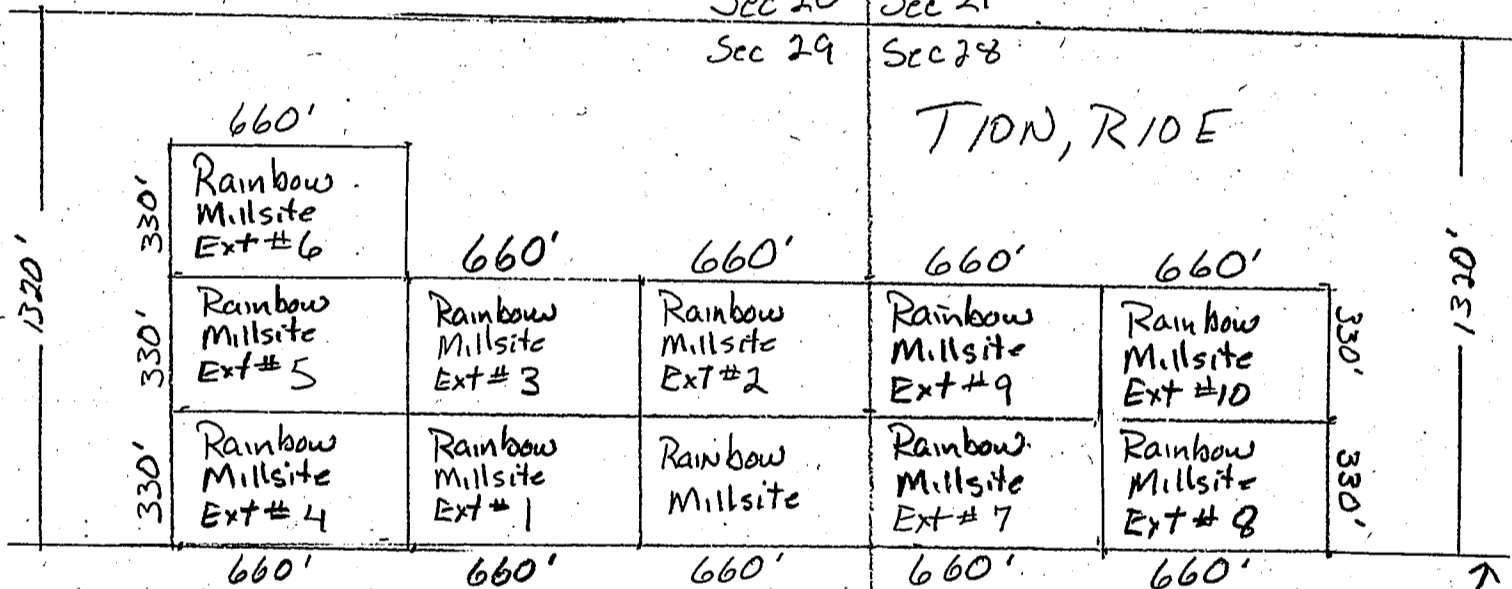 Sec 20 Sec 21
Sec 29 Sec 28
T10N, R10E
660'
Rainbow
Millsite
Ext #6
330'
1320'
1320'
660' 660' 660' 660'
Rainbow
Millsite
Ext # 5
330'
Rainbow
Millsite
Ext # 3
Rainbow
Millsite
ExT #2
Rainbow
Millsite
Ext #9
Rainbow
Millsite
Ext #10
330'
Rainbow
Millsite
Ext # 4
330'
Rainbow
Millsite
Ext # 1
Rainbow
Millsite
Rainbow
Millsite
Ext # 7
Rainbow
Millsite
Ext # 8
330'
660' 660' 660' 660' 660'